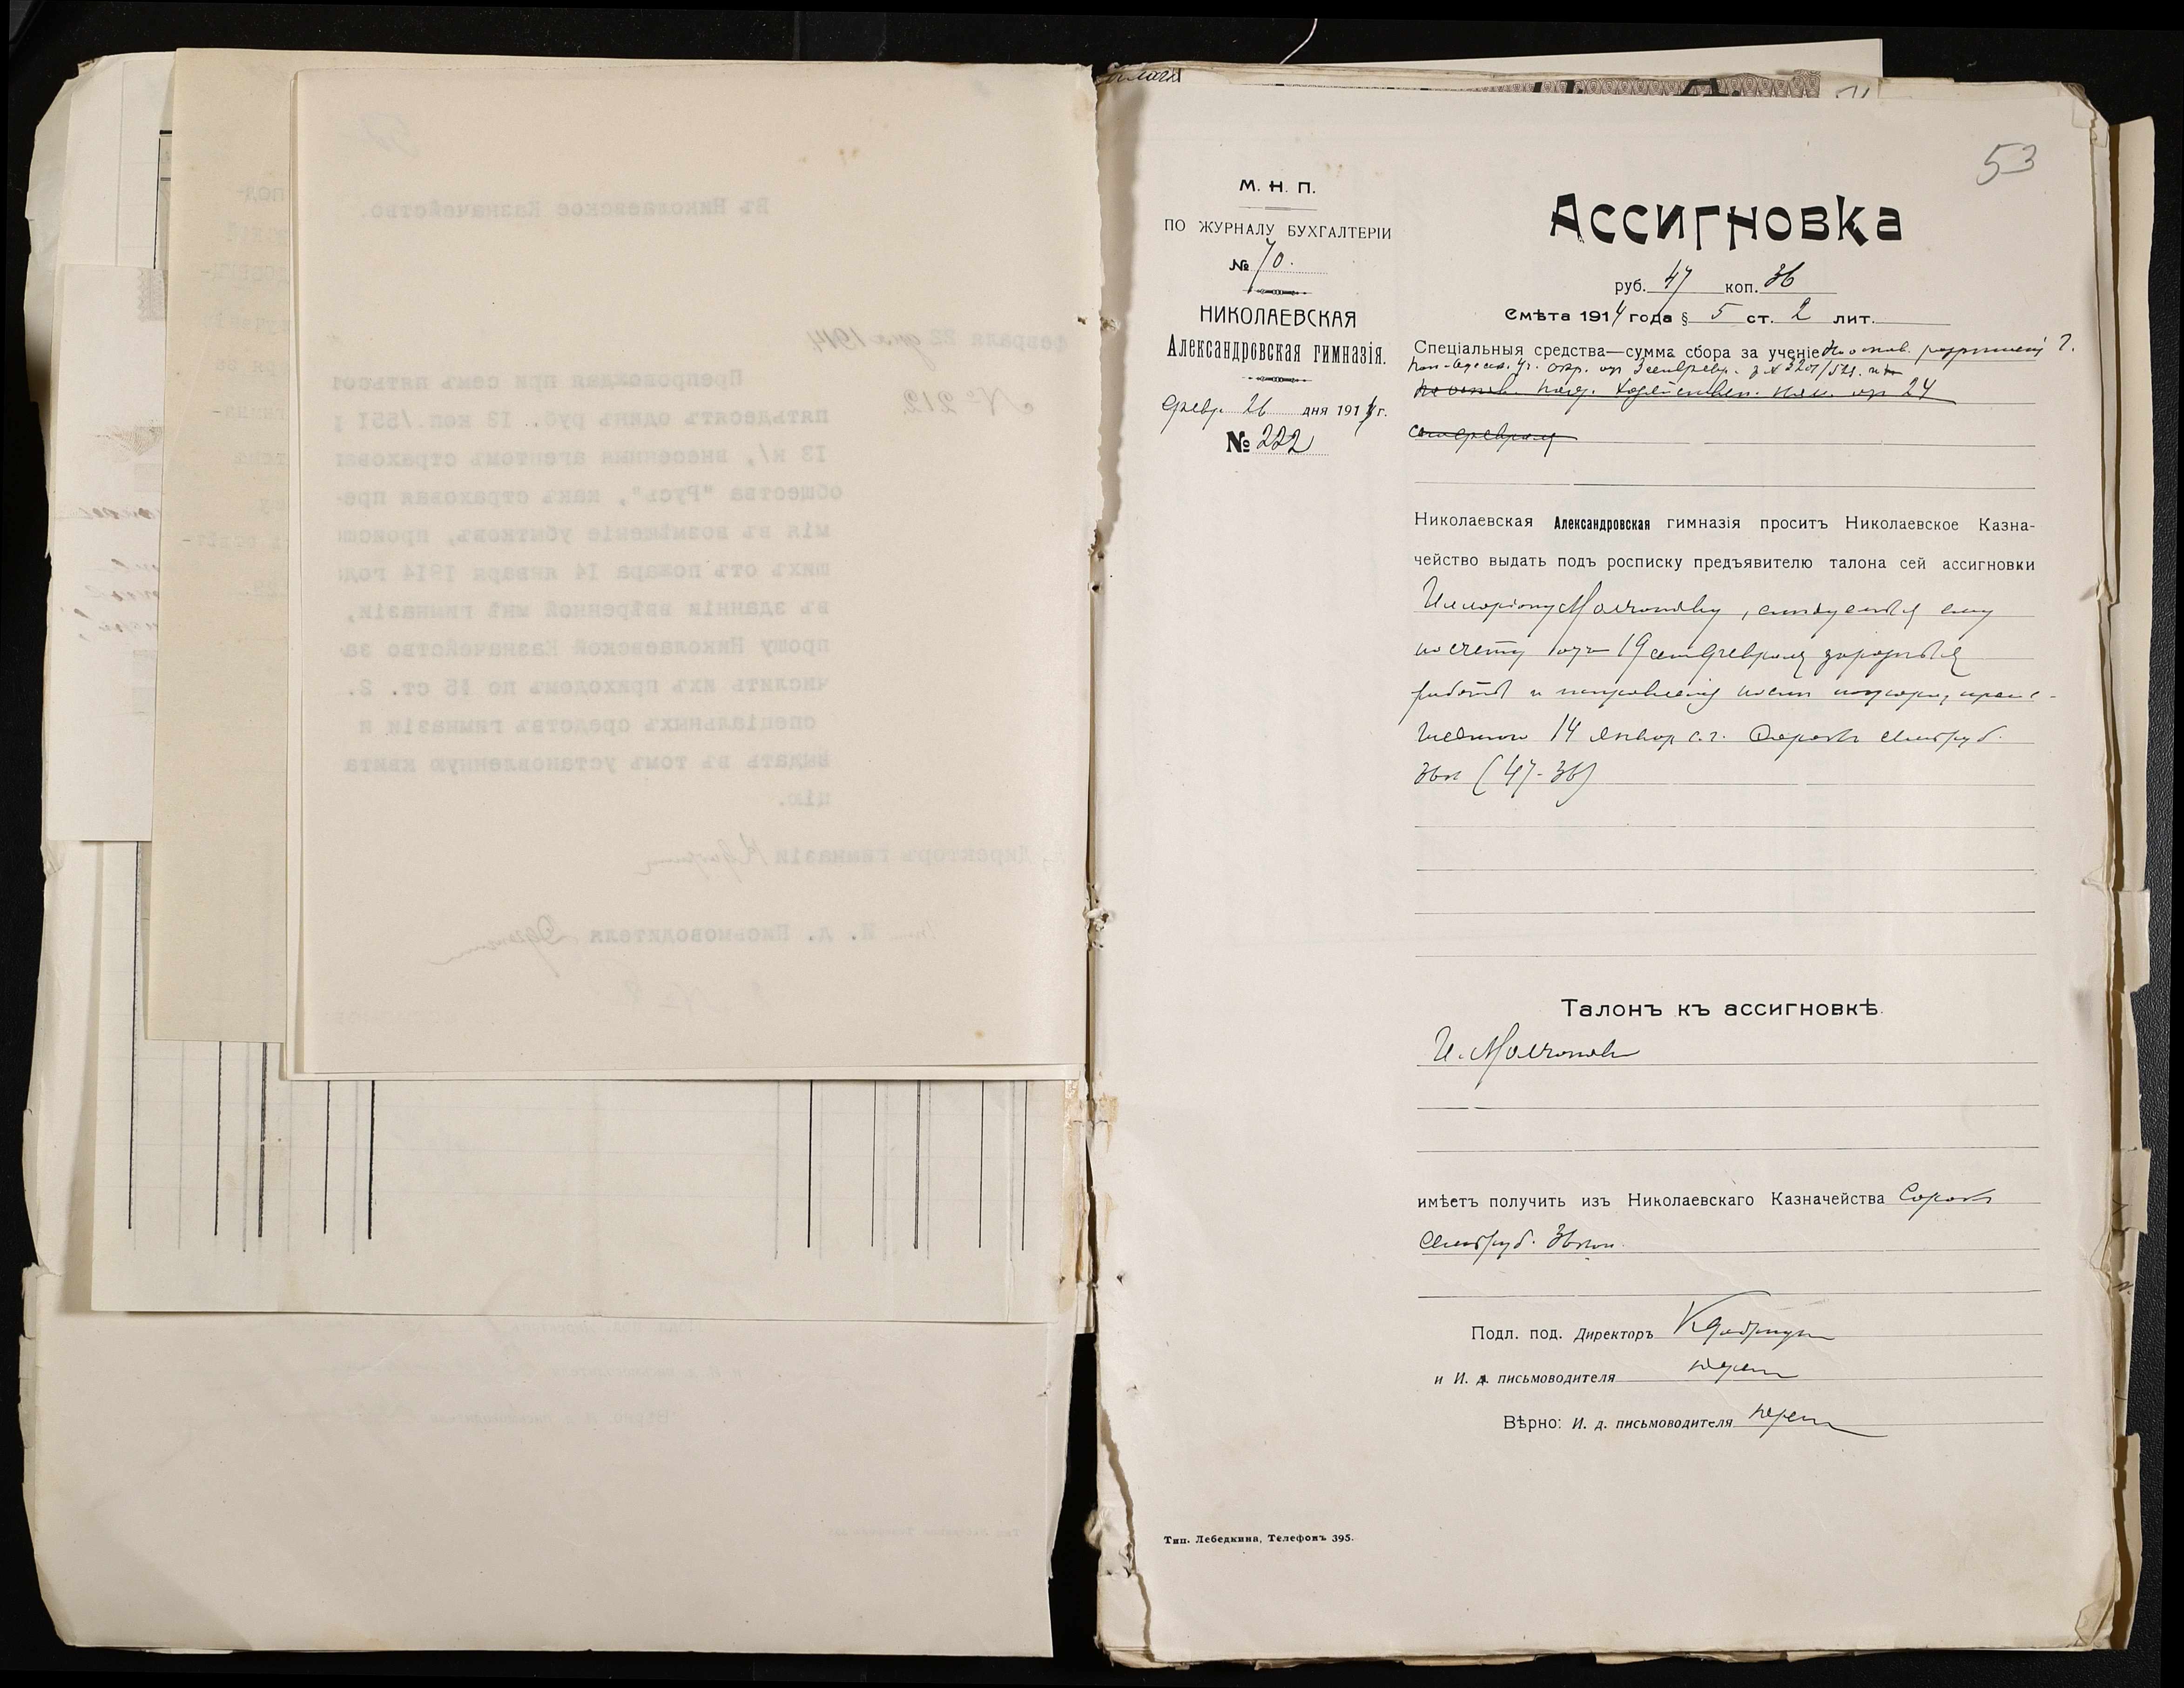 53
М. Н. П.
ПО ЖУРНАЛУ БУХГАЛТЕРІИ
№ 70.
НИКОЛАЕВСКАЯ
Александровская гимназія.
февр. 26 дня 1914 г.
№ 222
Ассигновка
руб. 47 коп. 36
Смѣта 1914 года § 5 ст. 2 лит.
Спеціальныя средства—сумма сбора за ученіе
24
Николаевская Александровская гимназія проситъ Николаевское Казна-
чейство выдать подъ росписку предъявителю талона сей ассигновки
Илларіону Молчанову, слѣдуемыя ему
по счету отъ 19 сего февраля
работы и исправленія послѣ пожара, проис-
шедшаго 14 январ с. г. Сорокъ семь руб.
36 к (47-36)
Талонъ къ ассигновкѣ.
И. Молчановъ
имѣетъ получить изъ Николаевскаго Казначейства Сорокъ
семь руб. 36 коп.
Подл. под. Директоръ
и И. д. письмоводителя
Вѣрно: И. д. письмоводителя
Тип. Лебедкина, Телефонъ 395.
Въ Николаевское Казначейство.
февраля 22 дня 1914
№ 212
Препровождая при семъ пятьсот
пятьдесятъ одинъ руб. 13 коп. /551 р
13 к/, внесенныя агентомъ страхован
общества "Русь", какъ страховая пре-
мія въ возмѣщеніе убытковъ, происш
шихъ отъ пожара 14 января 1914 года
въ зданіи ввѣренной мнѣ гимназіи,
прошу Николаевской Казначейство за-
числить ихъ приходомъ по §5 ст. 2.
спеціальныхъ средствъ гимназіи и
выдать въ томъ установленную квита
цію.
Директоръ гимназіи
И. д. Письмоводителя